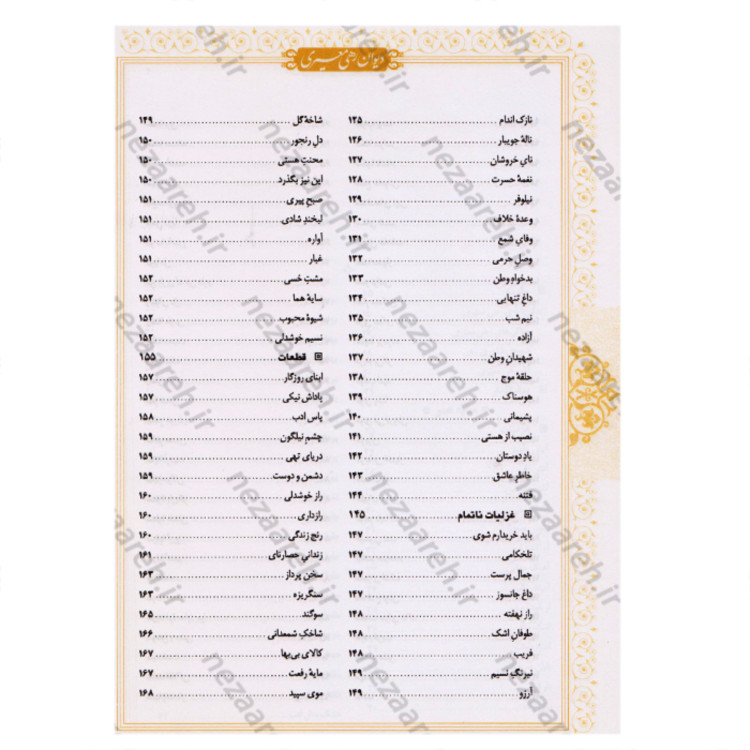 دیوان رهی معیری
نازک اندام ۱۲۵
نالهٔ جویبار ۱۲۶
نای خروشان ۱۲۷
نغمهٔ حسرت ۱۲۸
نیلوفر ۱۲۹
وعدهٔ خلاف ۱۳۰
وفای شمع ۱۳۱
وصل حرمی ۱۳۲
بدخواهِ وطن ۱۳۳
داغ تنهایی ۱۳۴
نیم شب ۱۳۵
آزاده ۱۳۶
شهیدانِ وطن ۱۳۷
حلقهٔ موج ۱۳۸
هوسناک ۱۳۹
پشیمانی ۱۴۰
نصیب از هستی ۱۴۱
یادِ دوستان ۱۴۲
خاطرِ عاشق ۱۴۳
فتنه ۱۴۴
غزلیات ناتمام ۱۴۵
باید خریدارم شوی ۱۴۷
تلخکامی ۱۴۷
جمال پرست ۱۴۷
داغ جانسوز ۱۴۷
راز نهفته ۱۴۸
طوفان اشک ۱۴۸
فریب ۱۴۸
نیرنگ نسیم ۱۴۹
آرزو ۱۴۹
شاخهٔ گل ۱۴۹
دلِ رنجور ۱۵۰
محنتِ هستی ۱۵۰
این نیز بگذرد ۱۵۰
صبح پیری ۱۵۱
لبخندِ شادی ۱۵۱
آواره ۱۵۱
غبار ۱۵۱
مشتِ خسی ۱۵۲
سایهٔ هما ۱۵۲
شیوهٔ محبوب ۱۵۲
نسیم خوشدلی ۱۵۲
قطعات ۱۵۵
ابنای روزگار ۱۵۷
پاداش نیکی ۱۵۷
پاس ادب ۱۵۸
چشم نیلگون ۱۵۹
دریای تهی ۱۵۹
دشمن و دوست ۱۵۹
راز خوشدلی ۱۶۰
رازداری ۱۶۰
رنج زندگی ۱۶۰
زندانیِ حصارنای ۱۶۱
سخن پرداز ۱۶۳
سنگریزه ۱۶۳
سوگند ۱۶۵
شاخکِ شمعدانی ۱۶۶
کالای بی‌بها ۱۶۷
مایهٔ رفعت ۱۶۷
موی سپید ۱۶۸
nezaareh.ir